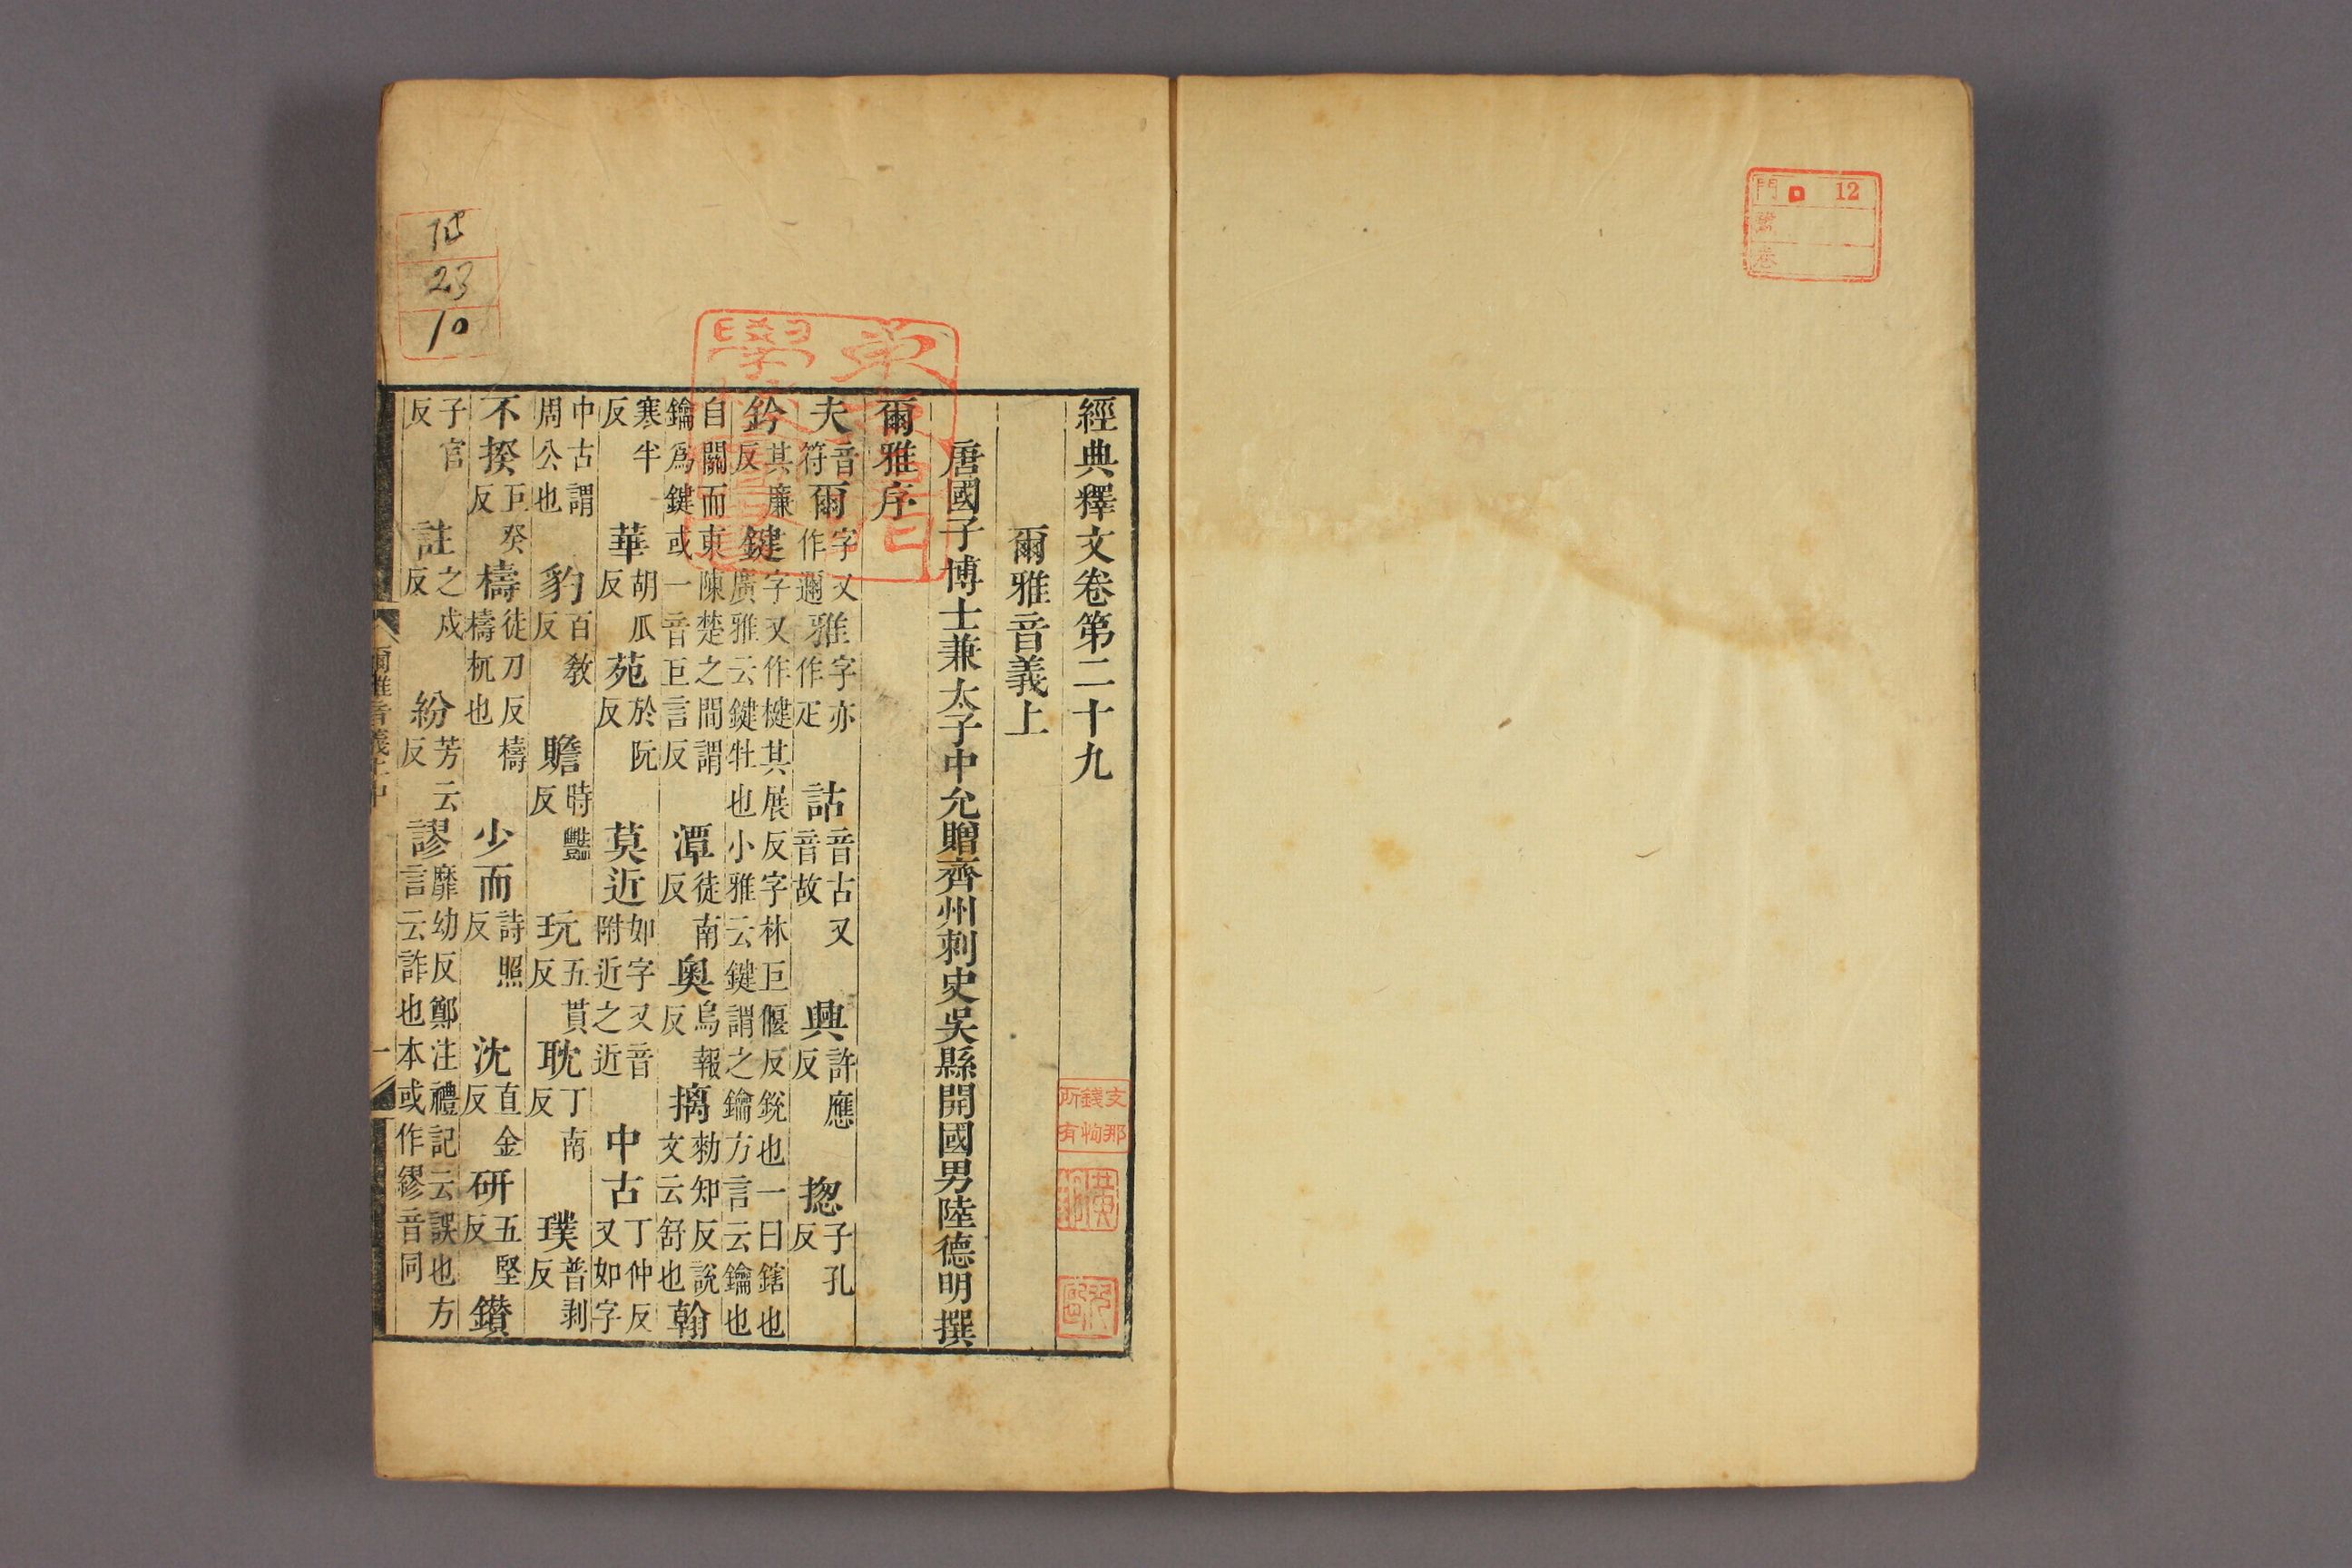 門 12
號
卷
經典釋文卷第二十九
爾雅音義上
唐國子博士兼太子中允贈齊州刺史吳縣開國男陸德明撰
爾雅序
夫音符爾字又作邇雅字亦作疋詁音古又音故興許應反揔子孔反
鈐其廉反鍵字又作楗其展反字林巨偃反銳也一曰鎋也廣雅云鍵牡也小雅云鍵謂之鑰方言云鑰也
自關而東陳楚之間謂鑰爲鍵或一音巨言反潭徒南反奥烏報反摛勑知反說文云舒也翰
寒半反華胡瓜反苑於阮反莫近如字又音附近之近中古丁仲反又如字
中古謂周公也豹百敎反贍時豔反玩五貫反耽丁南反璞普剥反
不揆巨癸反檮徒刀反檮檮杌也少而詩照反沈直金反研五堅反鑽
子官反註之戍反紛芳云反謬靡幼反鄭注禮記云誤也方言云詐也本或作繆音同
爾雅音義上中
一
支那
錢恂
所有
18
23
10